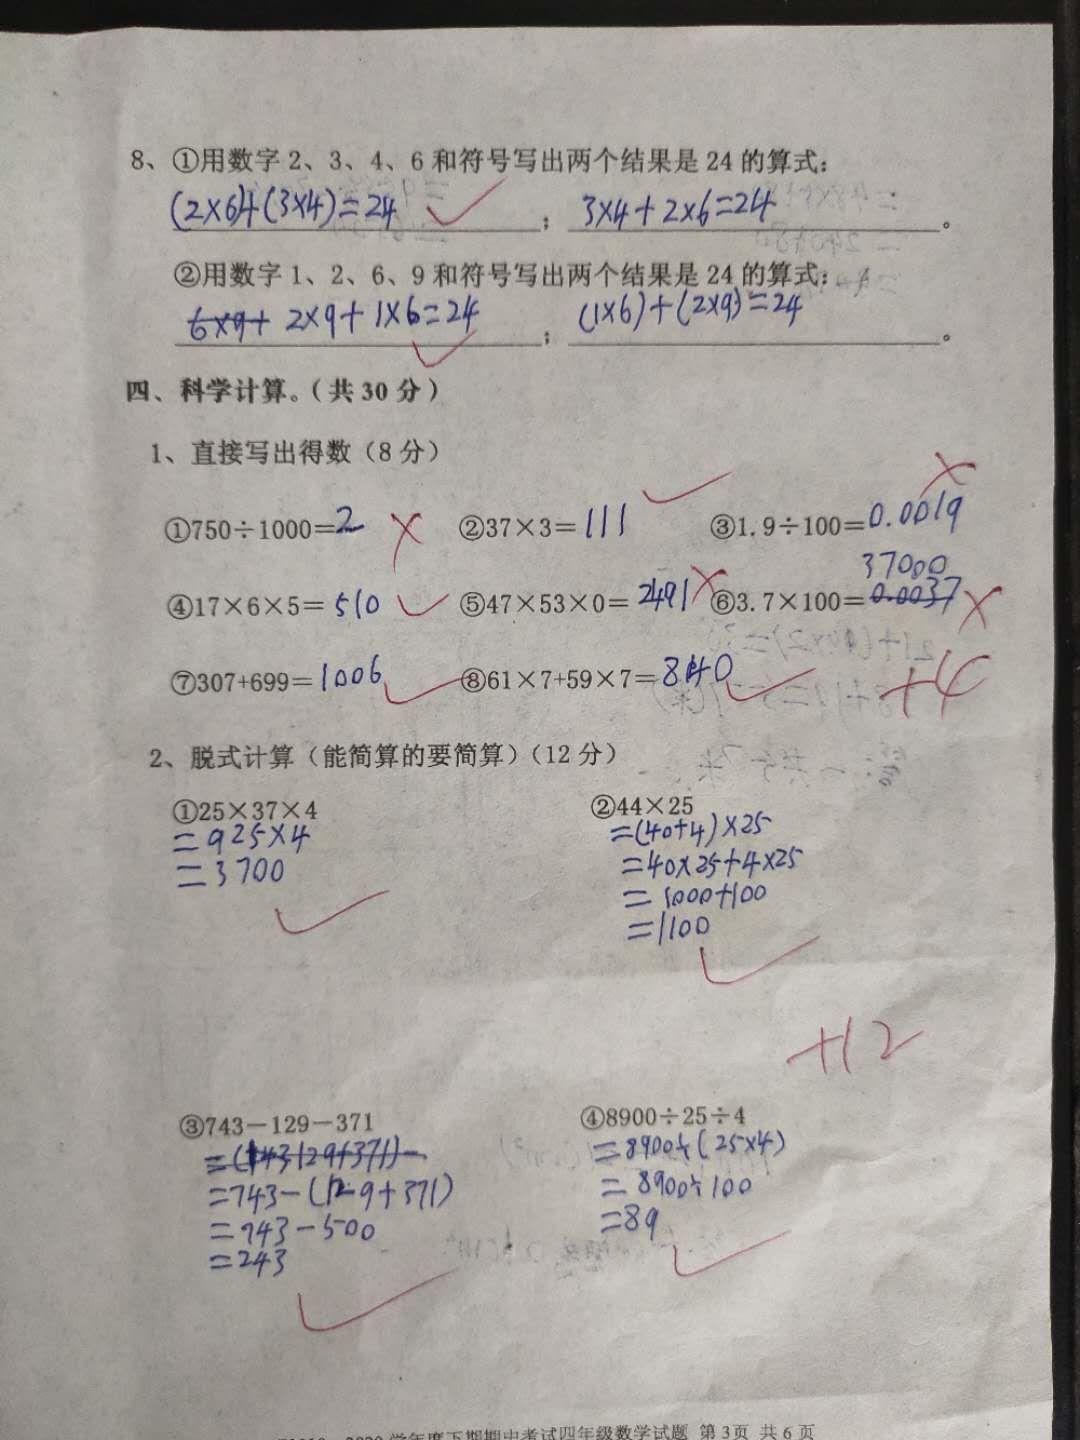 8、①用数字2、3、4、6和符号写出两个结果是24的算式:
(2×6)+(3×4)=24 ； 3×4+2×6=24 。
②用数字1、2、6、9和符号写出两个结果是24的算式:
6×9+ 2×9+1×6=24 ； (1×6)+(2×9)=24 。
四、科学计算。(共30分)
1、直接写出得数(8分)
①750÷1000=2 ②37×3=111 ③1.9÷100=0.0019
37000
④17×6×5=510 ⑤47×53×0=2491 ⑥3.7×100=0.0037
⑦307+699=1006 ⑧61×7+59×7=840 +4
2、脱式计算(能简算的要简算)(12分)
①25×37×4 ②44×25
=925×4 =(40+4)×25
=3700 =40×25+4×25
=1000+100
=1100
+12
③743-129-371 ④8900÷25÷4
=8900÷(25×4)
=743-(129+371) =8900÷100
=743-500 =89
=243
学年度下期期中考试四年级数学试题 第3页 共6页